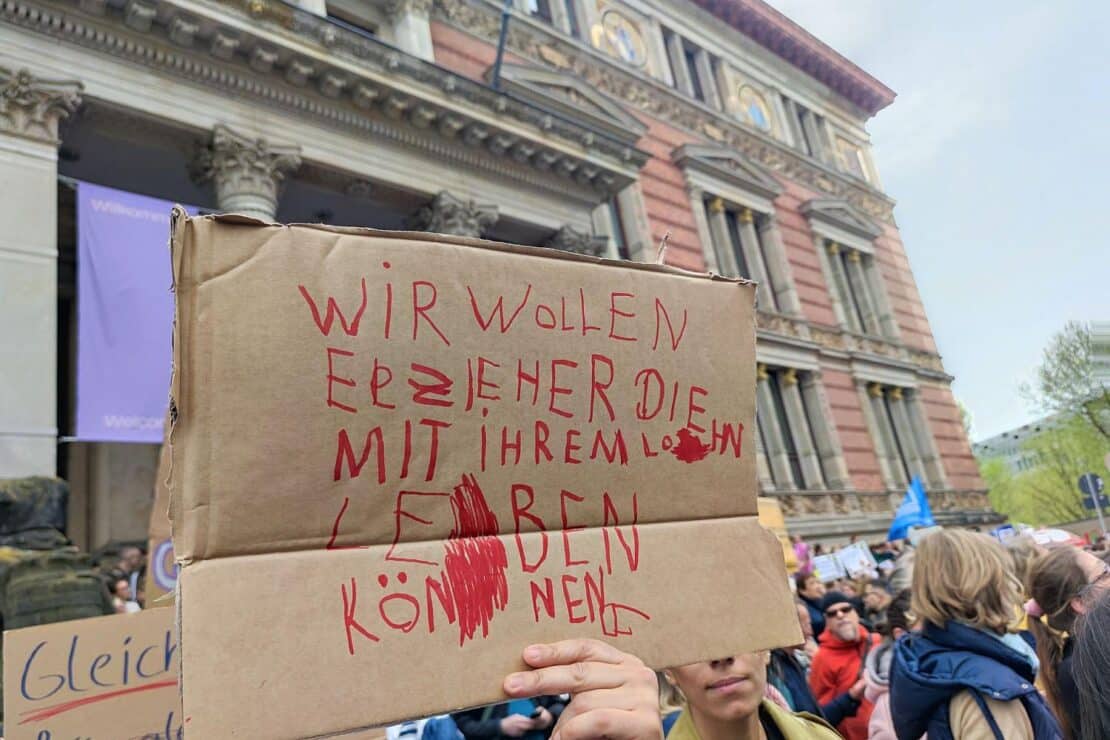 Willkomm
Welcom
WiR WOLLEN
ERZIEHER DIE
MIT iHREM LOHN
LEBEN
KÖNNEN
Gleich